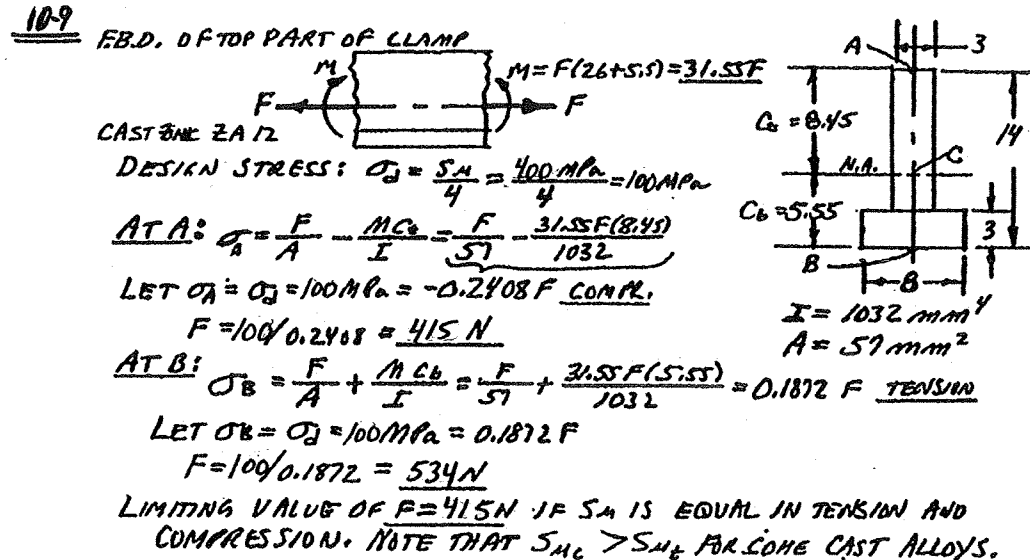 10-9 F.B.D. OF TOP PART OF CLAMP
M
M = F(26+5.5) = 31.55F
F
F
CAST ZINC ZA 12
DESIGN STRESS: σd = SM/4 = 400 MPa/4 = 100 MPa
AT A: σA = F/A - MCt/I = F/57 - 31.55F(8.45)/1032
LET σA = σd = 100 MPa = -0.2408 F COMPR.
F = 100/0.2408 = 415 N
AT B: σB = F/A + MCb/I = F/57 + 31.55F(5.55)/1032 = 0.1872 F TENSION
LET σB = σd = 100 MPa = 0.1872 F
F = 100/0.1872 = 534 N
LIMITING VALUE OF F = 415 N IF SM IS EQUAL IN TENSION AND
COMPRESSION. NOTE THAT SMC > SMt FOR SOME CAST ALLOYS.
A
3
Ct = 8.45
14
N.A.
C
Cb = 5.55
3
B
8
I = 1032 mm⁴
A = 57 mm²